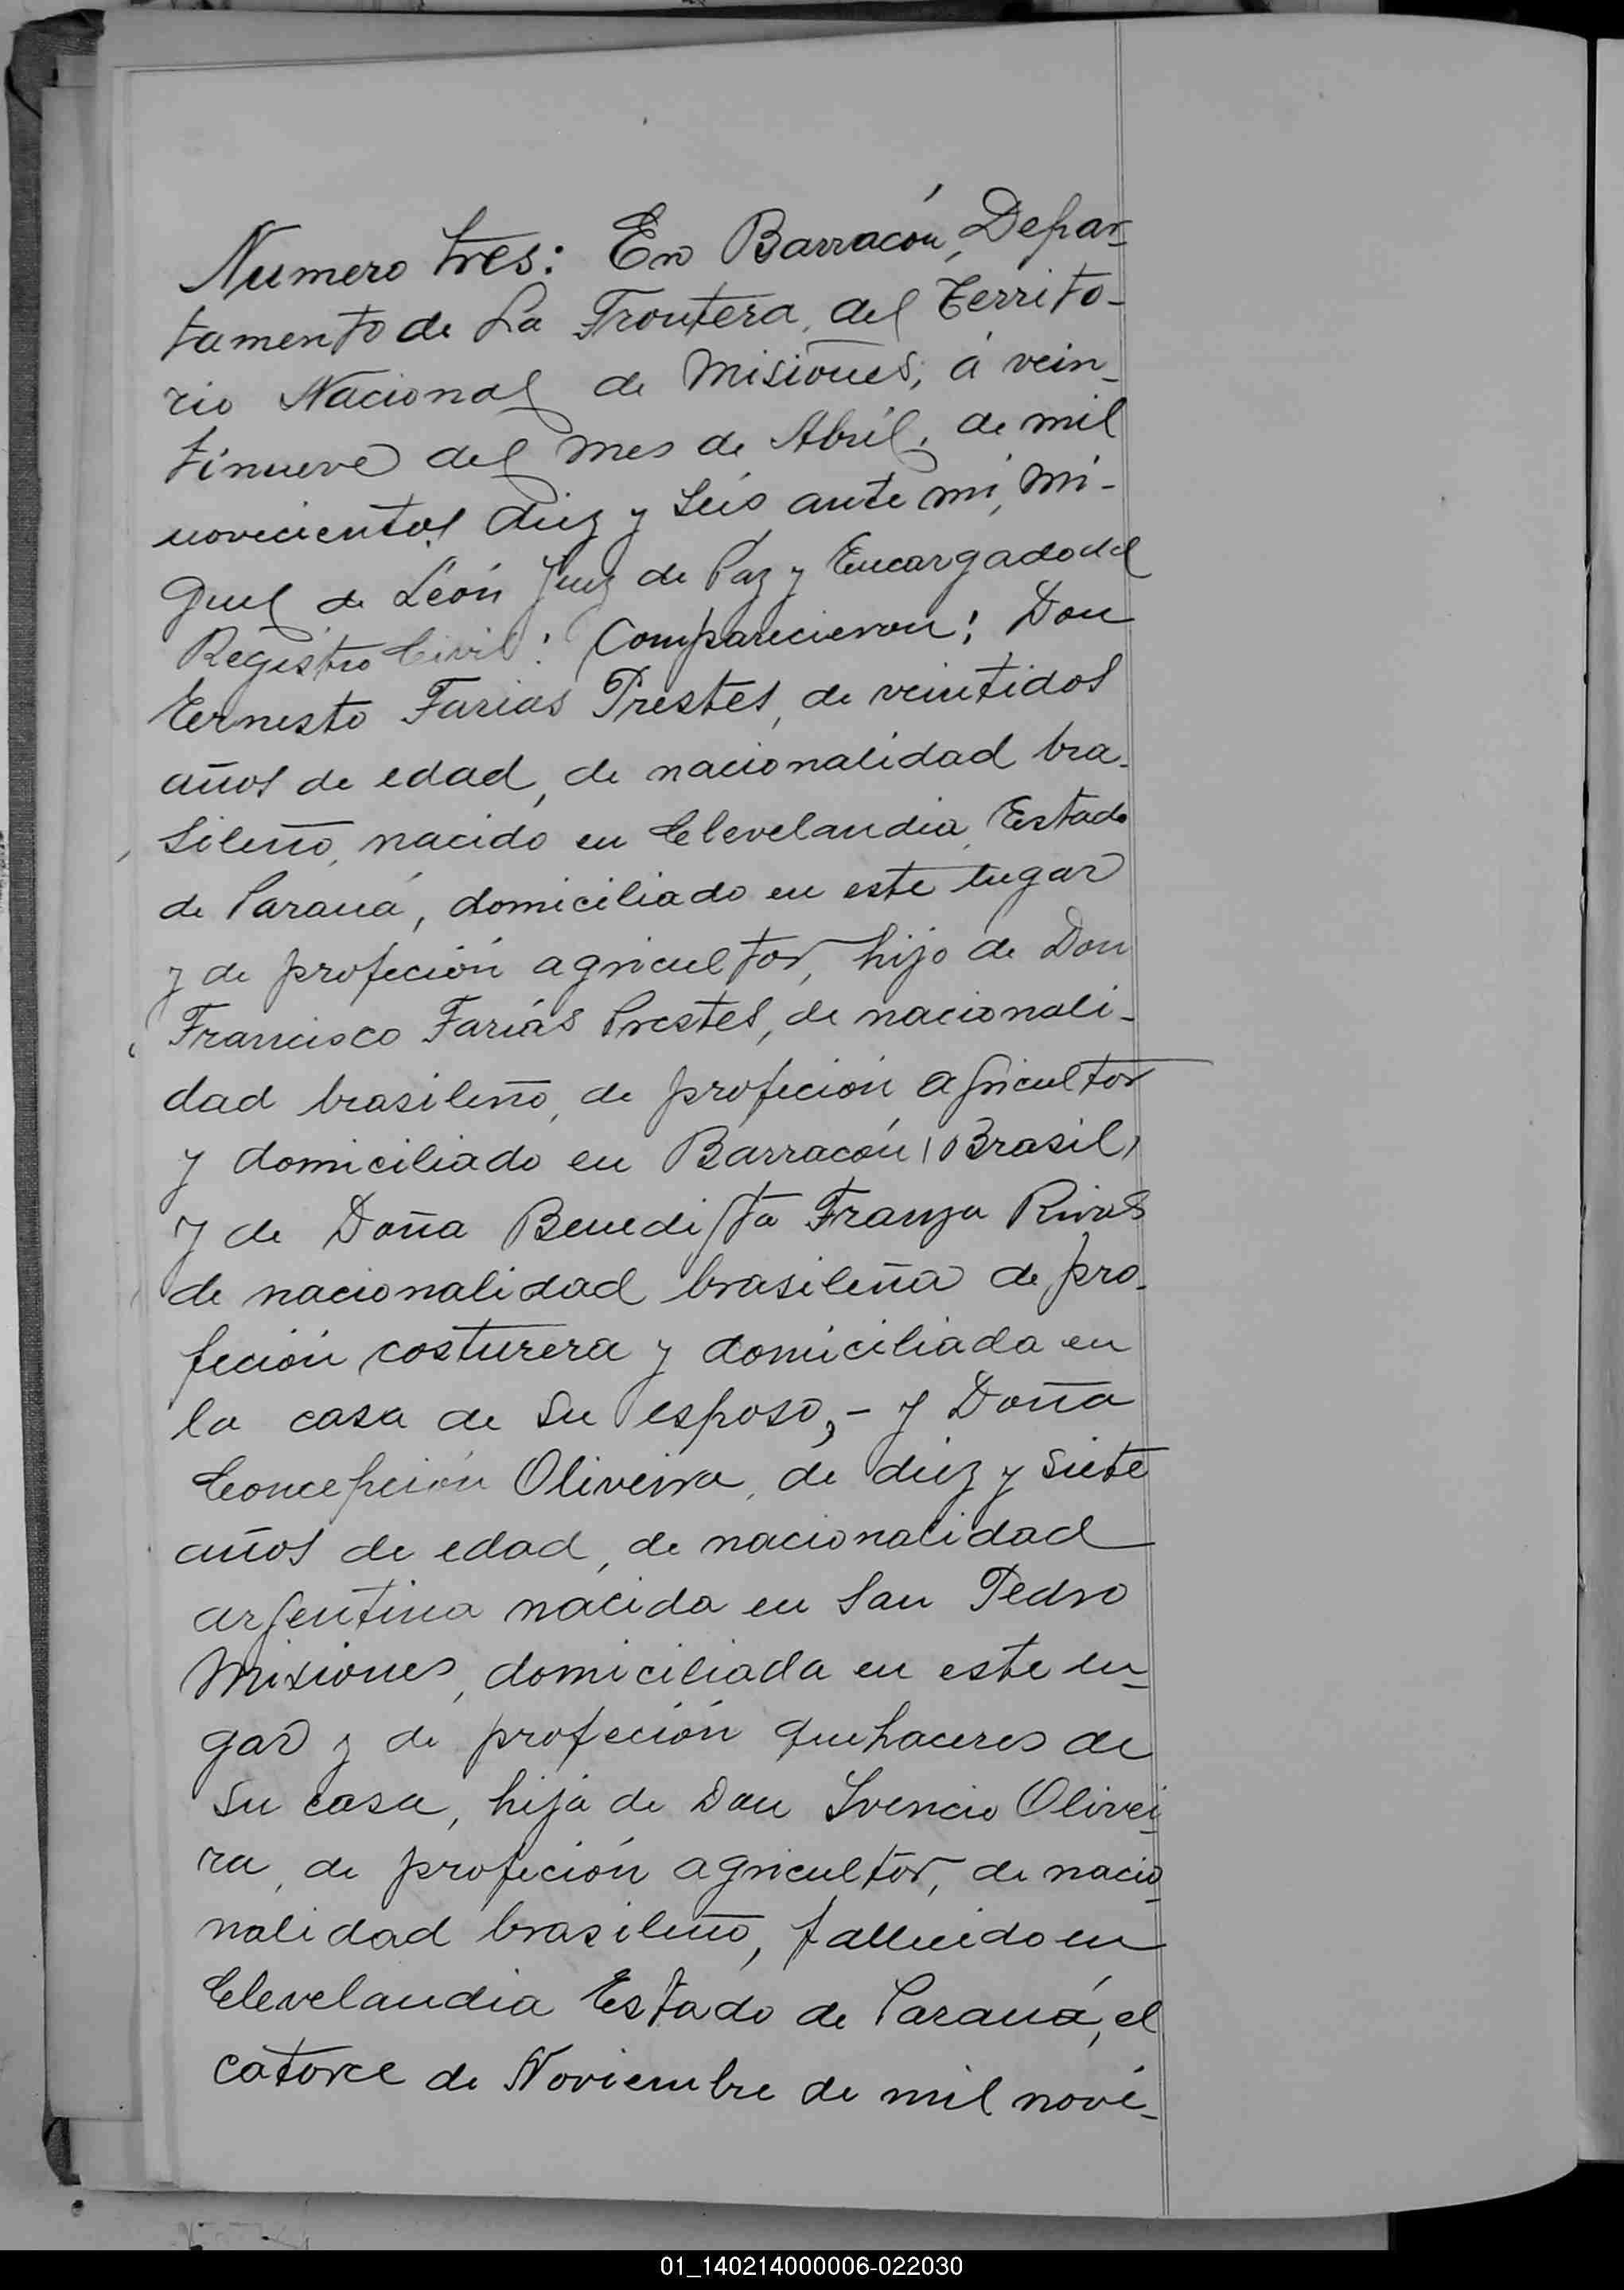 Numero tres: En Barracón, Depar-
tamento de La Frontera, del Territo-
rio Nacional de Misiones, á vein-
tinueve del mes de Abril, de mil
novecientos diez y seis ante mi, Mi-
guel de León Juez de Paz y Encargado del
Registro Civil: Comparecieron: Don
Ernesto Farias Prestes, de veintidos
años de edad, de nacionalidad bra-
sileño, nacido en Clevelandia, Estado
de Paraná, domiciliado en este lugar
y de profeción agricultor, hijo de Don
Francisco Farías Prestes, de nacionali-
dad brasileño, de profeción agricultor
y domiciliado en Barracón (Brasil)
y de Doña Benedista Rivas
de nacionalidad brasileña de pro-
feción costurera y domiciliada en
la casa de su esposo,- y Doña
Concepción Oliveira, de diez y siete
años de edad, de nacionalidad
argentina nacida en San Pedro
Misiones, domiciliada en este lu-
gar y de profeción quehaceres de
su casa, hija de Don Olivei-
ra, de profeción agricultor, de nacio-
nalidad brasileño, fallecido en
Clevelandia Estado de Paraná, el
catorce de Noviembre de mil nove-
01_140214000006-022030